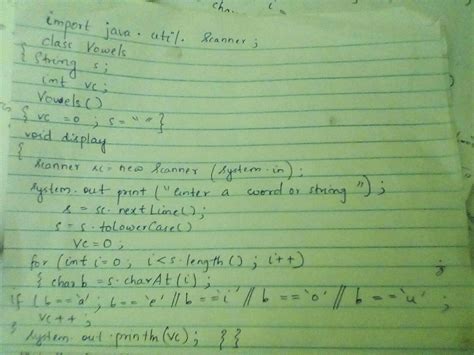 import java.util.Scanner;
class Vowels
{ String s;
int vc;
Vowels()
{ vc =0 ; s=" " }
void display
{
Scanner sc=new Scanner (System.in);
System.out print ("Enter a word or string");
s = sc.nextLine();
s = s.toLowerCase()
vc=0;
for (int i=0; i<s.length(); i++)
{ char b=s.charAt(i);
if ( b=='a'; b=='e' // b=='i' // b=='o' // b=='u' ;
vc++ ;
} System.out.println(vc); }}